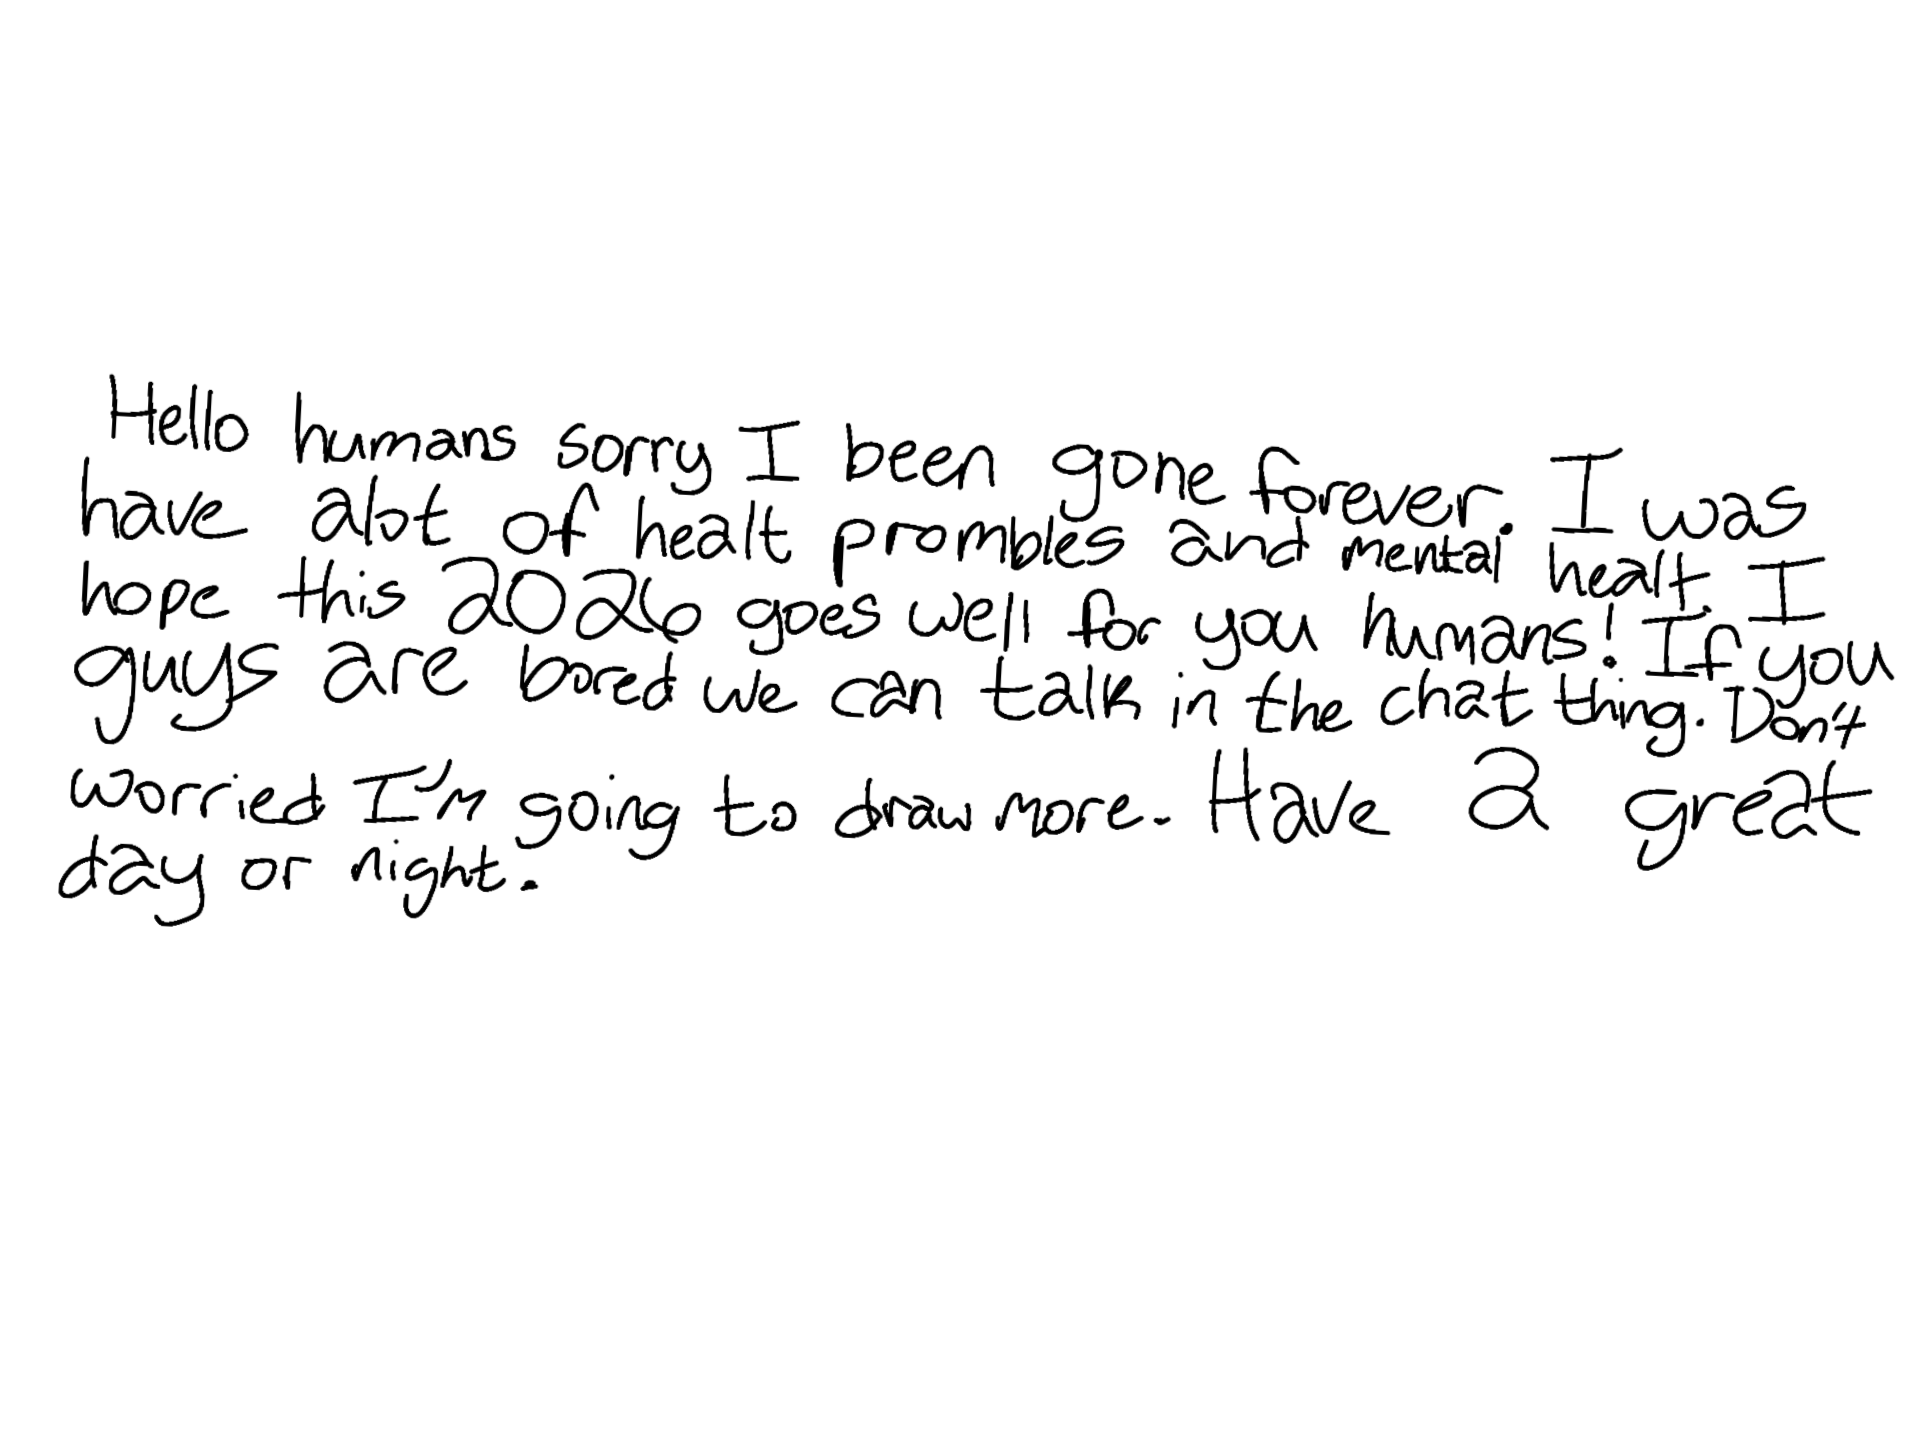 Hello humans sorry I been gone forever. I was
have alot of healt prombles and mental healt. I
hope this 2026 goes well for you humans! If you
guys are bored we can talk in the chat thing. Don't
worried I'm going to draw more. Have a great
day or night.